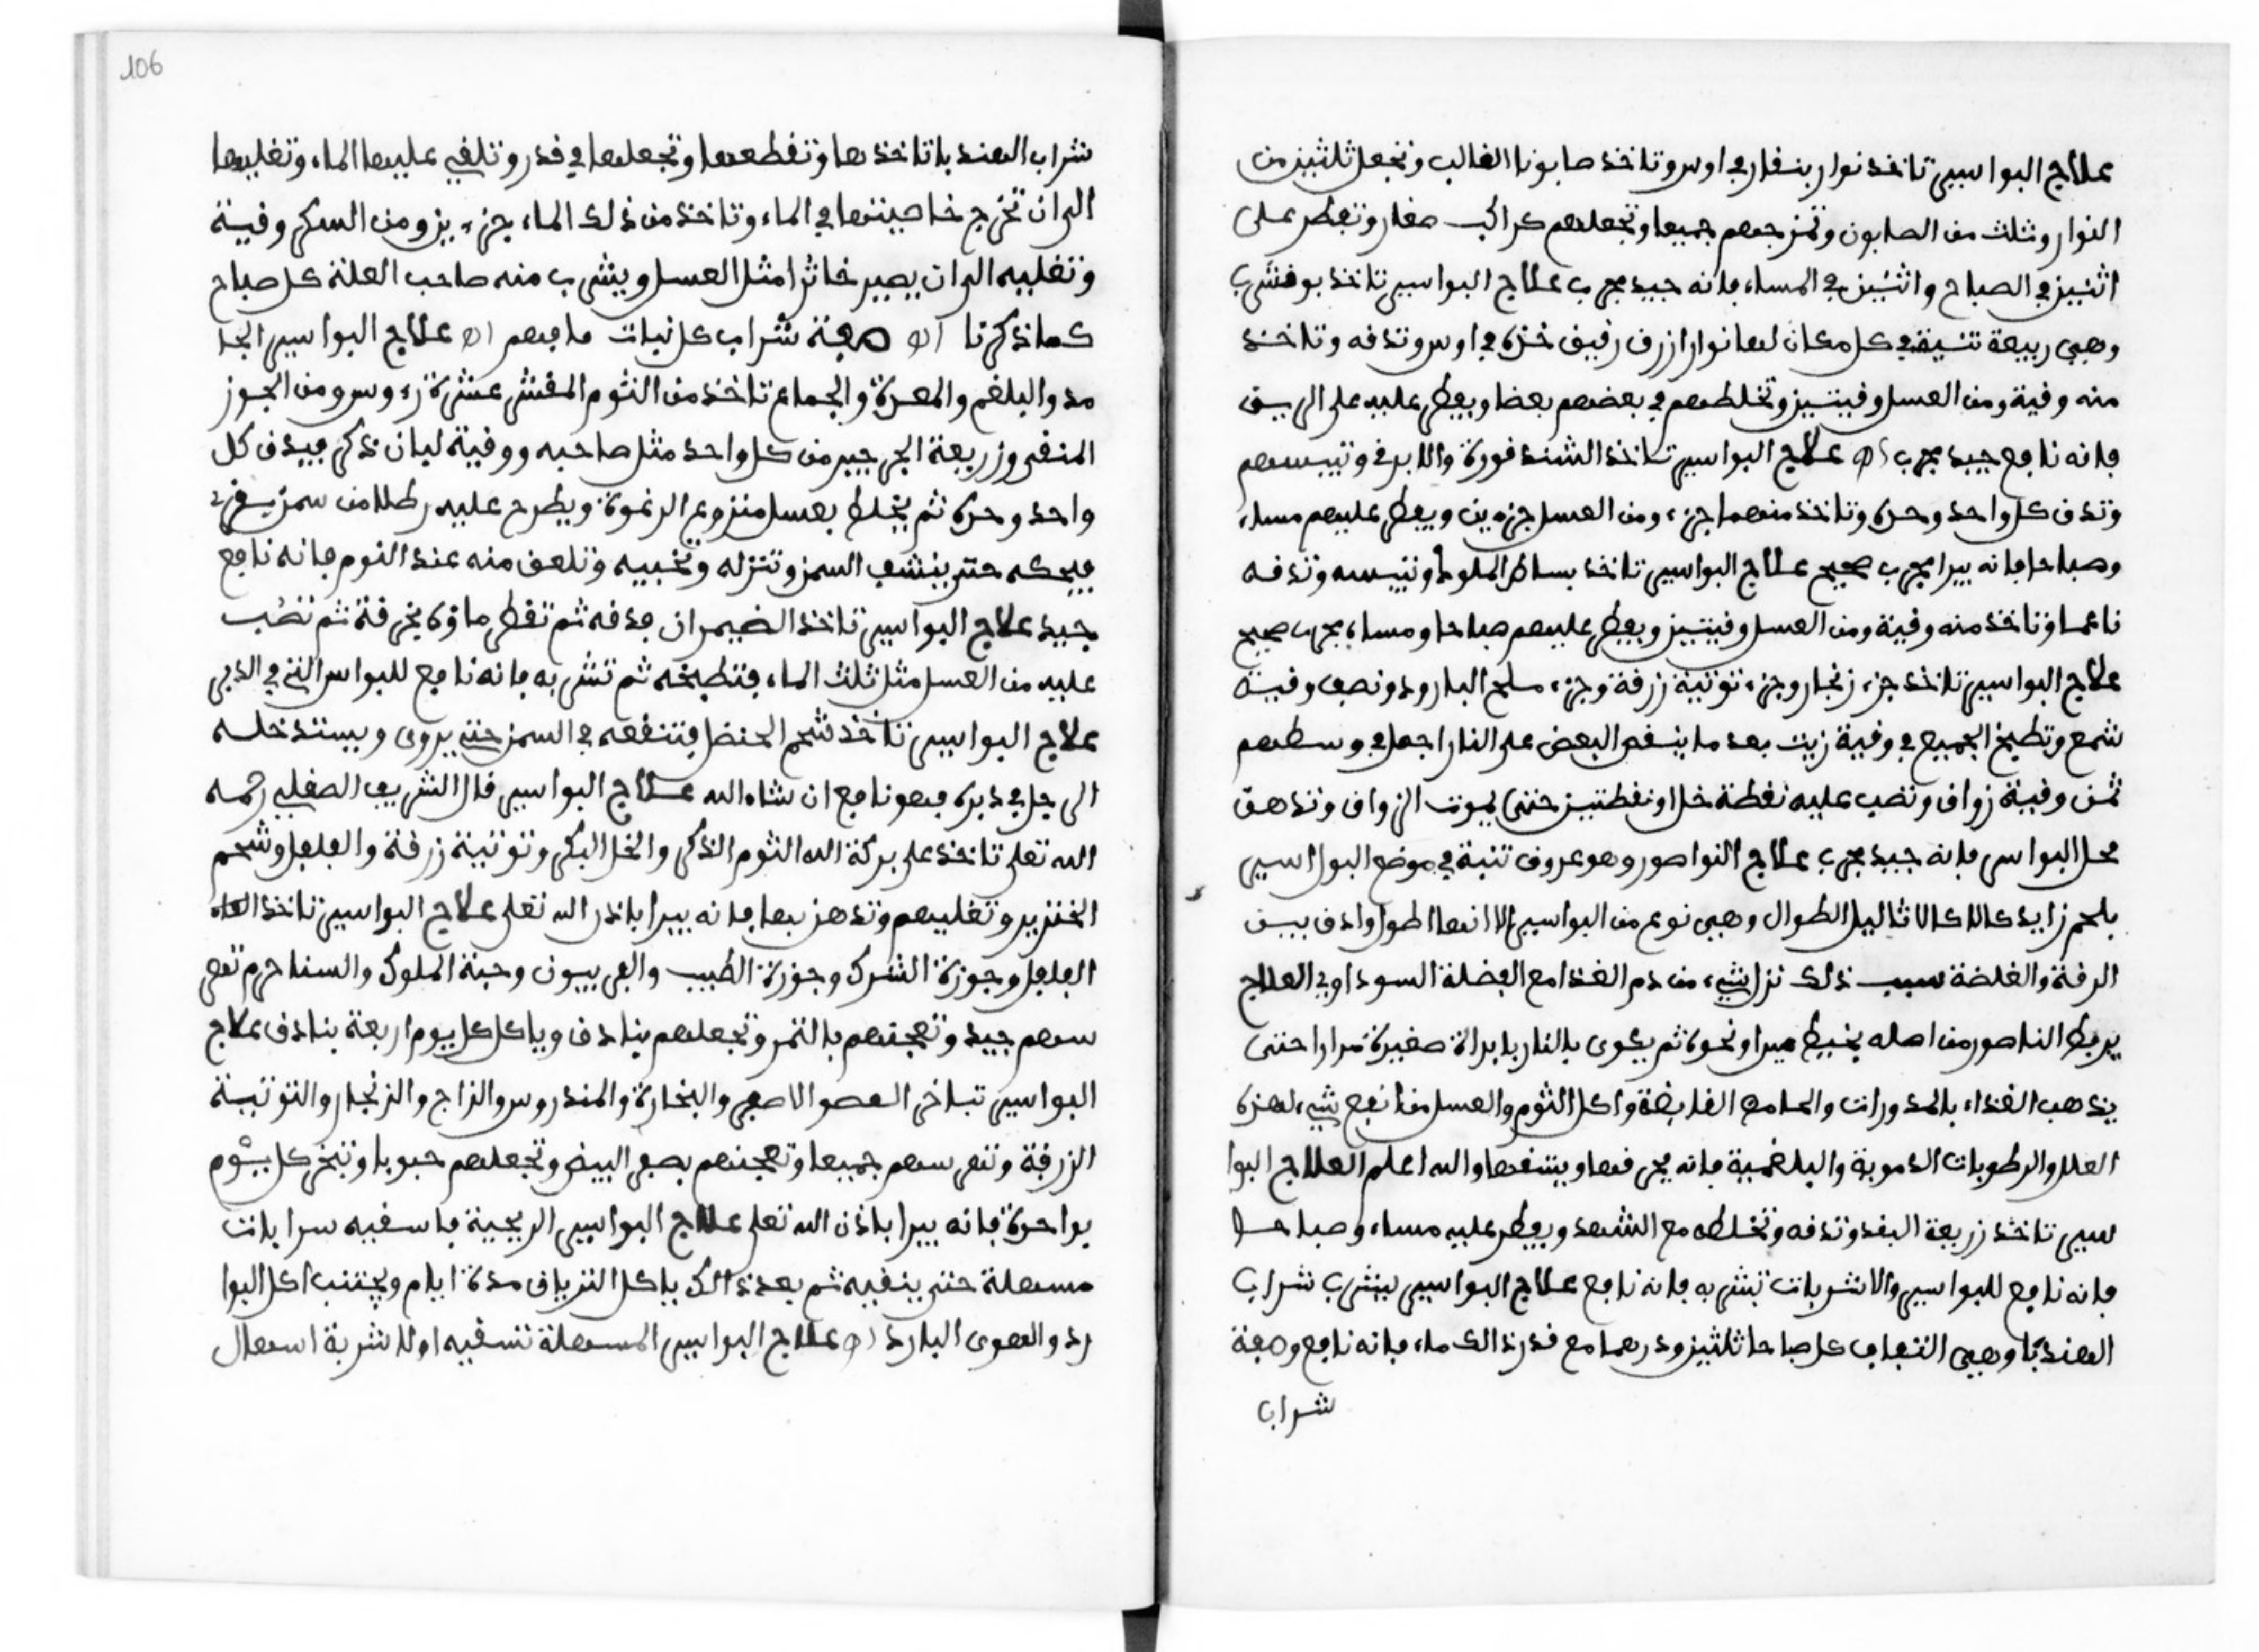 علاج البواسيى تاخذ نوار بنفارج اوس وتاخذ صابونا الغالب وتجعل ثلثين من
النوار وثلث من الصابون وتمزجهم جميعا وتجعلهم كراكب صغار وتفطر على
اثنين في الصباح واثنين في المساء فانه جيد مجرب علاج البواسيى تاخذ بوفشرب
وهيى ربيعة تنبت في كل مكان لها نوار ازرف رفيف خذه في اوس وتدفه وتاخذ
منه وفية ومن العسل وفيتين وتخلطهم في بعضهم بعضا ويفطر عليه على الريق
فانه نافع جيد مجرب اه علاج البواسيى تاخذ الشند فورة والابرف وتيبسهم
وتدف كل واحد وحده وتاخذ منهما جزء ومن العسل جزءين ويفطر عليهم مساء
وصباحا فانه يبرا مجرب صحيح علاج البواسيى تاخذ بساط الملوك وتيبسه وتدفه
ناعما وتاخذ منه وفية ومن العسل وفيتين ويفطر عليهم صباحا ومساء مجرب صحيح
علاج البواسيى تاخذ جزء زنجار وجزء توتية زرفة وجزء ملح البارود ونصف وفية
شمع وتطبخ الجميع في وفية زيت بعد ما ينسفى البعض على النار اجعل في وسطهم
ثمن وفية زواف وتصب عليه نفطة خل او نفطتين حتى يموت الزواف وتدهن
محل البواسى فانه جيد مجرب علاج النواصور وهو عروف تنبت في موضع البواسيى
بلحم زايد كالاكالا ثاليل الطوال وهيى نوع من البواسيى الا انها اطول وادف بيىن
الرفة والغلضة سبب ذلك نزل شيء من دم الغذا مع الفضلة السودا وفي العلاج
يربط الناصور من اصله بخيط حرير او نحوه ثم يكوى بالنار بابراة صغيرة مرارا حتى
يذهب الغذاء بالمدورات والمسامع الفابضة واكل الثوم والعسل من انفع شيء لهذه
العلل والرطوبات الدموية والبلغمية فانه يحرفها وينشفها والله اعلم العلاج البوا
سيى تاخذ زريعة البفد وتدفه وتخلطه مع الشهد ويفطر عليه مساء وصباحا
فانه نافع للبواسيى والاشربات تشربه فانه نافع علاج البواسيى ليشرب شراب
الهندبا وهيى التفاف كل صباحا ثلثين ودرهما مع فدر ذالك ماء فانه نافع وصفة
شراب
شراب الهندبا تاخذها وتفطعها وتجعلها في فدر وتلفي عليها الماء وتغليها
الى ان تخرج خاصيتها في الماء وتاخذ من ذلك الماء جزءين ومن السكر وفية
وتغليه الى ان يصير خاثرا مثل العسل ويشرب منه صاحب العلة كل صباح
كما ذكرنا اه صفة شراب كل نبات فافهم اه علاج البواسيى الجا
مد والبلغم والمعدة والجماع تاخذ من الثوم المفشر عشرة رءوس ومن الجوز
المنفى وزريعة الجرجير من كل واحد مثل صاحبه ووفية لبان ذكر فيدف كل
واحد وحده ثم يخلط بعسل منزوع الرغوة ويطرح عليه رطلا من سمن بفري
فيحكه حتى ينشف السمن وتنزله وتخبيه وتلعف منه عند النوم فانه نافع
جيد علاج البواسيى تاخذ الضيمران فدفه ثم تفطر ماؤه بخرفة ثم تصب
عليه من العسل مثل ثلث الماء فتطبخه ثم تشربه فانه نافع للبواسر التي في الدبر
علاج البواسيى تاخذ شحم الحنضل فتنفعه في السمن حتى يروى ويستدخله
الرجل في دبره فهو نافع ان شاء الله علاج البواسيى فال الشريف الصفلي رحمه
الله تعلى تاخذ على بركة الله الثوم الذكر والخل البكر وتوتية زرفة والفلفل وشحم
الخنزير وتغليهم وتدهن بها فانه يبرا باذن الله تعلى علاج البواسيى تاخذ العاه
الفلفل وجوزة الشرك وجوزة الطيب والفربيون وحبة الملوك والسنا حرم تهر
سهم جيد وتعجنهم بالتمر وتجعلهم بنادف وياكل كل يوم اربعة بنادف علاج
البواسيى تباخر العصو الاصفر والبخارة والمندروس والزاج والزنجار والتوتية
الزرفة وتهرسهم جميعا وتعجنهم بصفر البيض وتجعلهم حبوبا وتبخر كل يوم
بواحدة فانه يبرا باذن الله تعلى علاج البواسيى الريحية فاسفيه سرابات
مسهلة حتى ينفيه ثم بعد ذالك ياكل الترياف مدة ايام ويجتنب اكل البوا
رد والهوى البارد اه علاج البواسيى المسهلة تسفيه اولا شربة اسهال